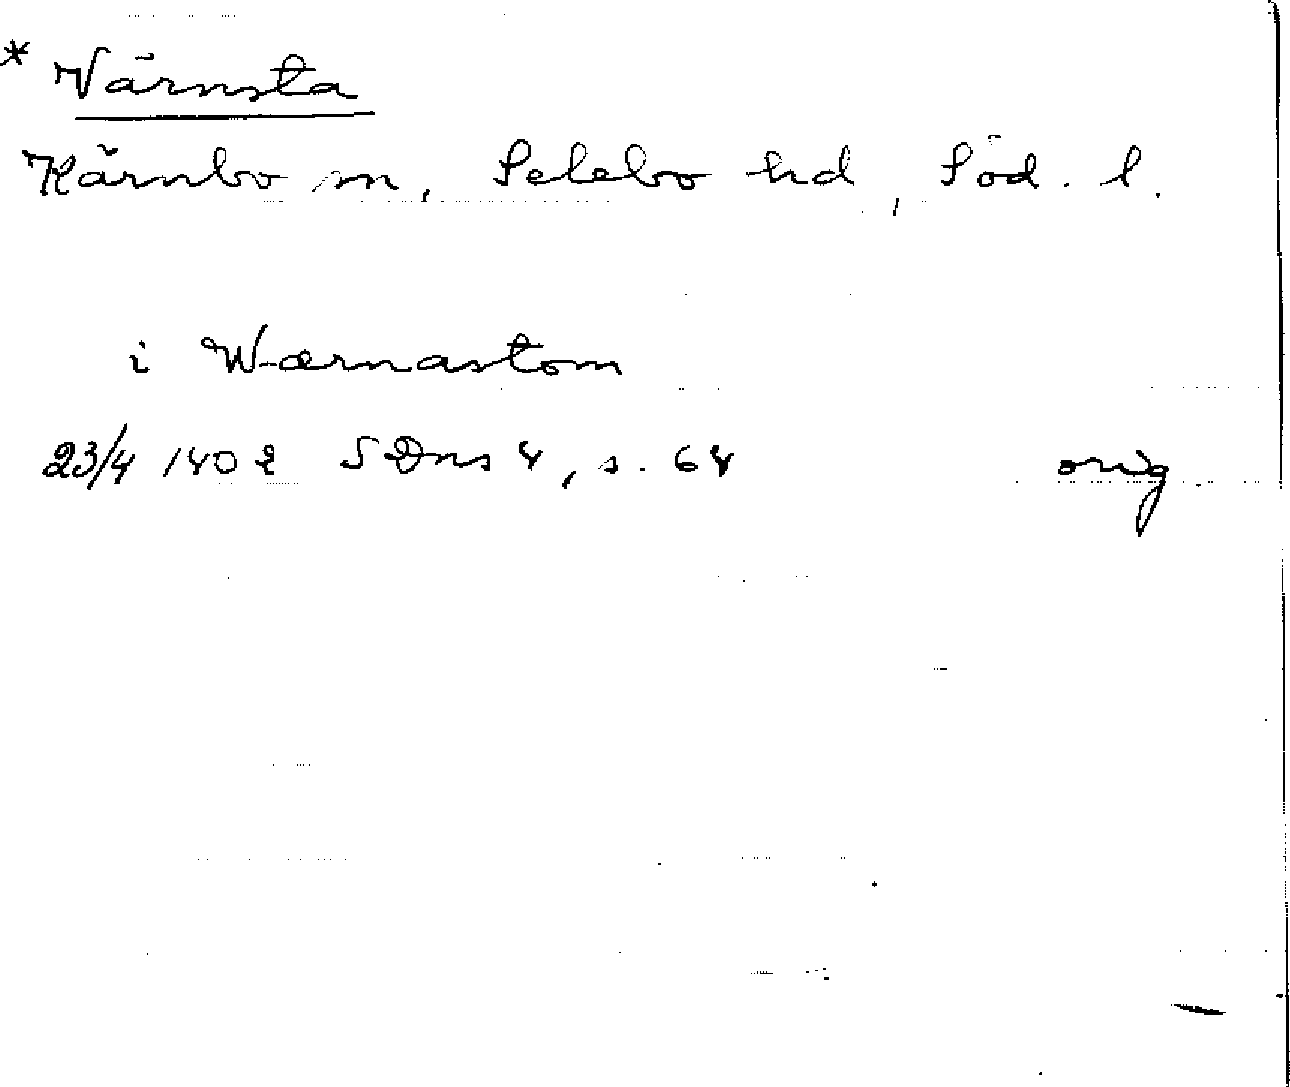 * Värnsta
Kärnbo sn, Selebo hd, Söd. l.
i Wærnastom
23/4 1402 SDns 4, s. 64 orig